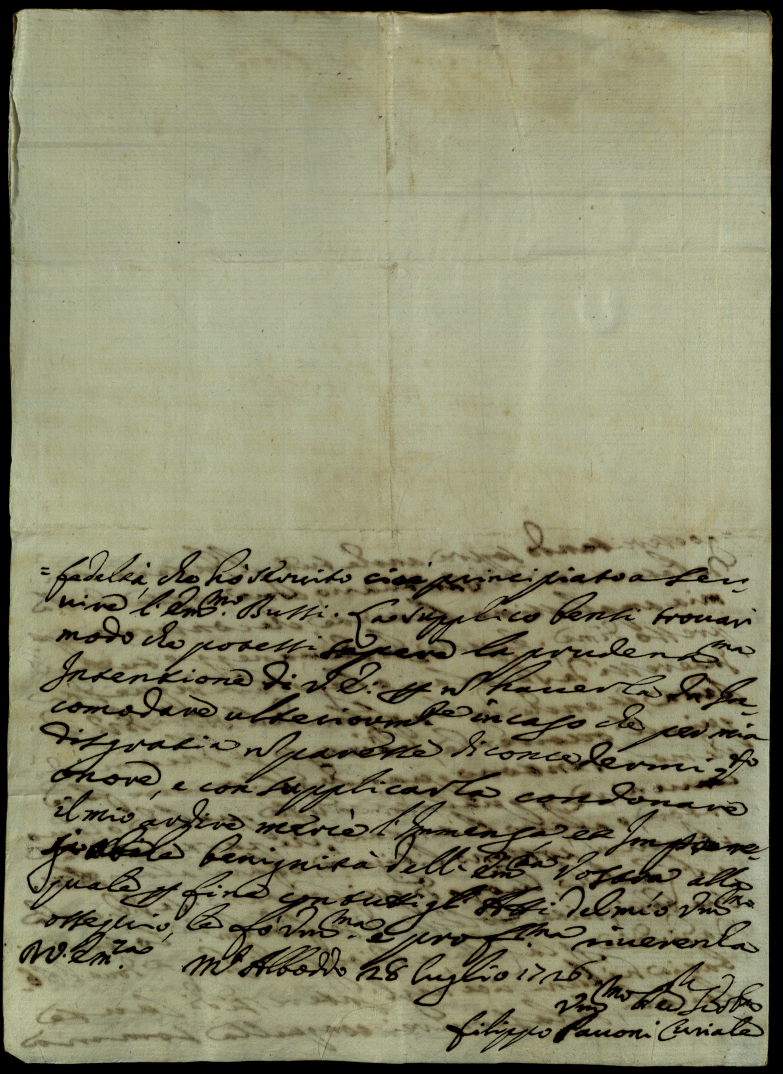 = fedeltà, che hò seruito cioè principiato a ser-
uire l'Em.mo Bussi. La supplico bensi trouar
modo che potessi sapere la prudent.ma
Intentione di V. E: p n hauerla da In-
comodare ulteriorm.te in caso che per mia
disgratia n paresse di concedermi q.sto
onore, e con supplicarla condonare
il mio ardire mercè l'Immensa, et
benignità dell' Em.za Vostra alla
quale p fine con tutti gl' Atti del mio Um.mo
ossequio, le fò Um.ma e prof.ma riuerenza
Di V. Em.za M. Alboddo 28 luglio 1726.
Um.mo
Filippo Pauoni Curiale